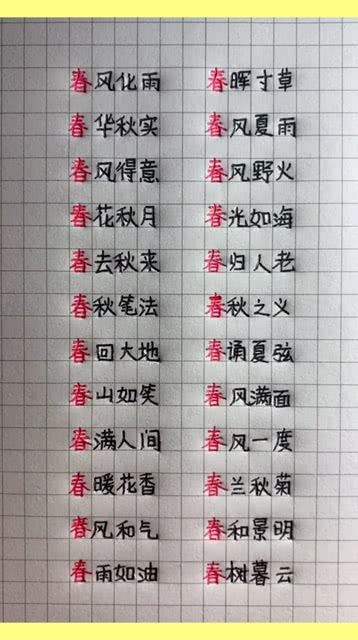 春风化雨 春晖寸草
春华秋实 春风夏雨
春风得意 春风野火
春花秋月 春光如海
春去秋来 春归人老
春秋笔法 春秋之义
春回大地 春诵夏弦
春山如笑 春风满面
春满人间 春风一度
春暖花香 春兰秋菊
春风和气 春和景明
春雨如油 春树暮云